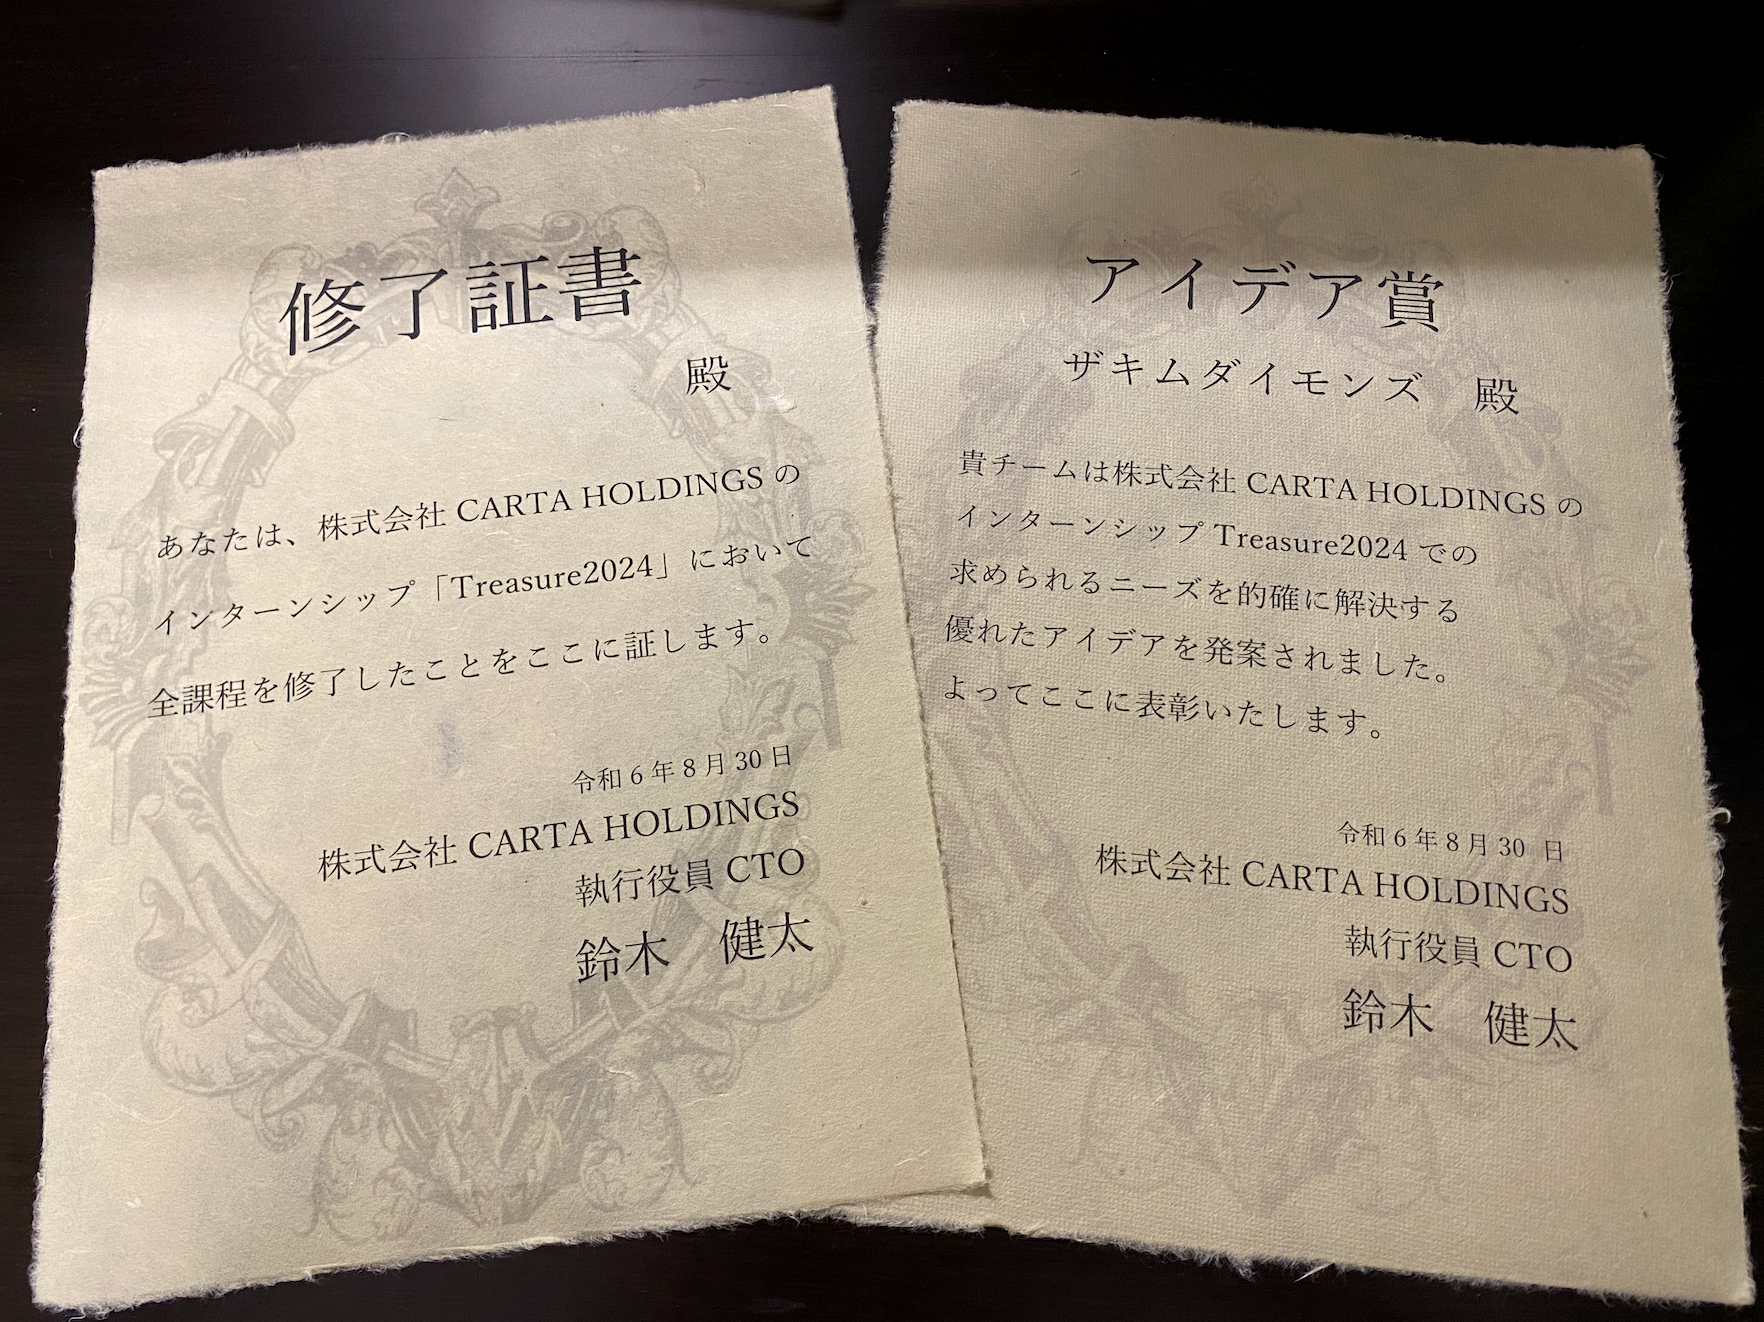 修了証書
殿
あなたは、株式会社 CARTA HOLDINGS の
インターンシップ「Treasure2024」において
全課程を修了したことをここに証します。
令和 6 年 8 月 30 日
株式会社 CARTA HOLDINGS
執行役員 CTO
鈴木　健太
アイデア賞
ザキムダイモンズ　殿
貴チームは株式会社 CARTA HOLDINGS の
インターンシップ Treasure2024 での
求められるニーズを的確に解決する
優れたアイデアを発案されました。
よってここに表彰いたします。
令和 6 年 8 月 30 日
株式会社 CARTA HOLDINGS
執行役員 CTO
鈴木　健太